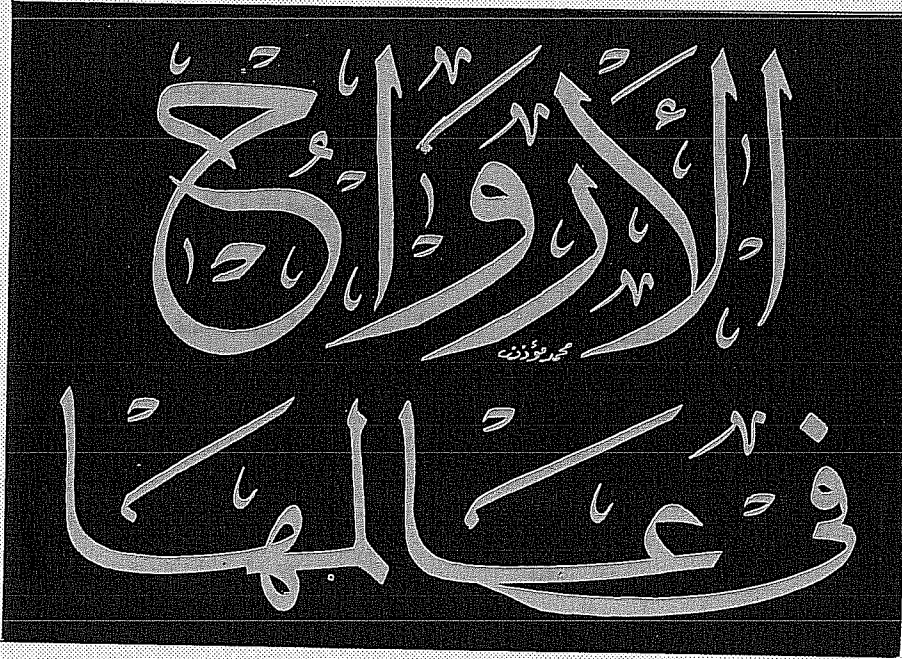 الأرواح
محمد مؤذن
في عالمها